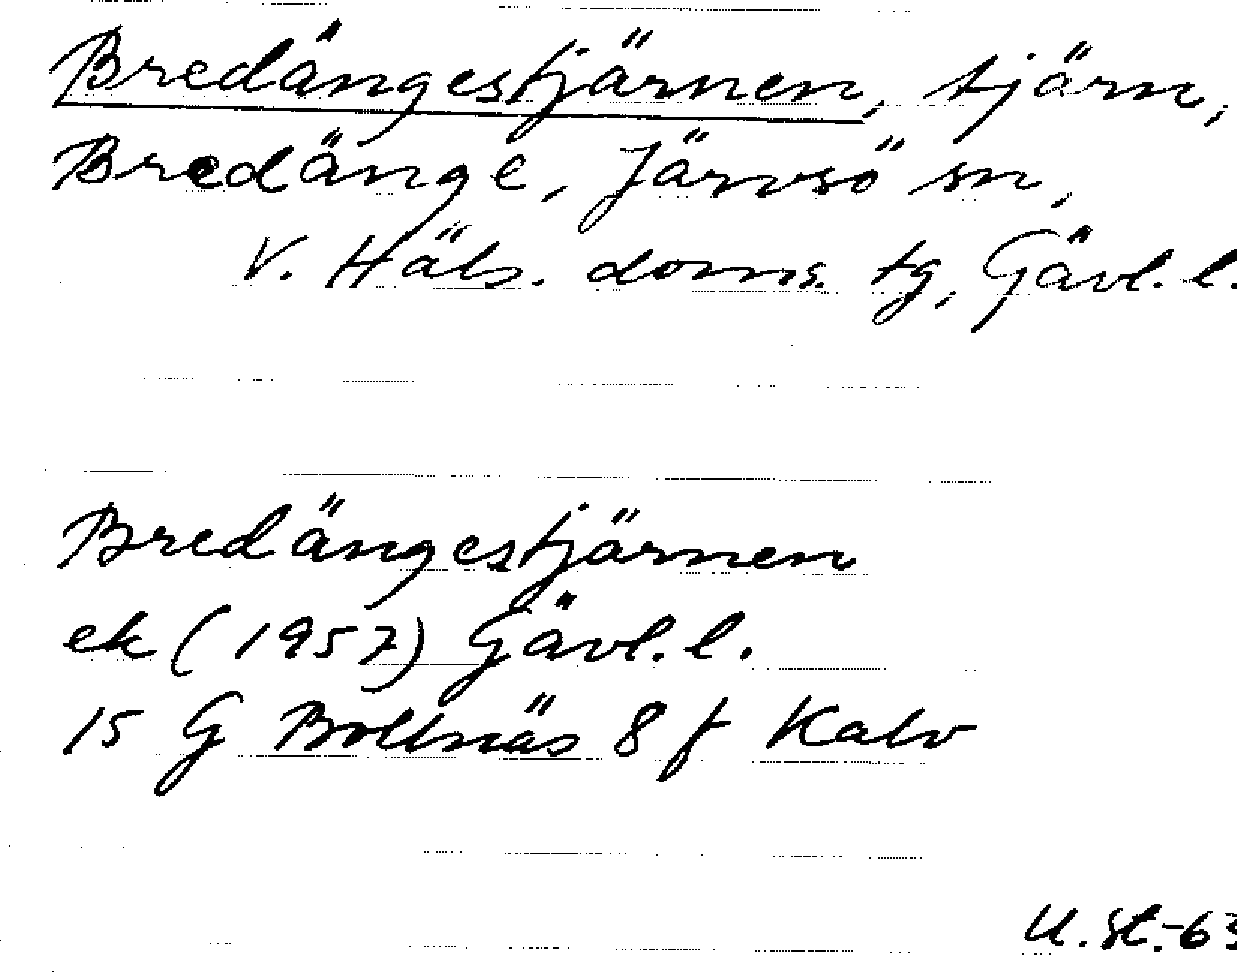 Bredängestjärnen, tjärn,
Bredänge, Järvsö sn,
V. Häls. doms. tg, Gävl. l.
Bredängestjärnen
ek (1957) Gävl. l.
15 G Bollnäs 8 f Kalv
U. St.-63